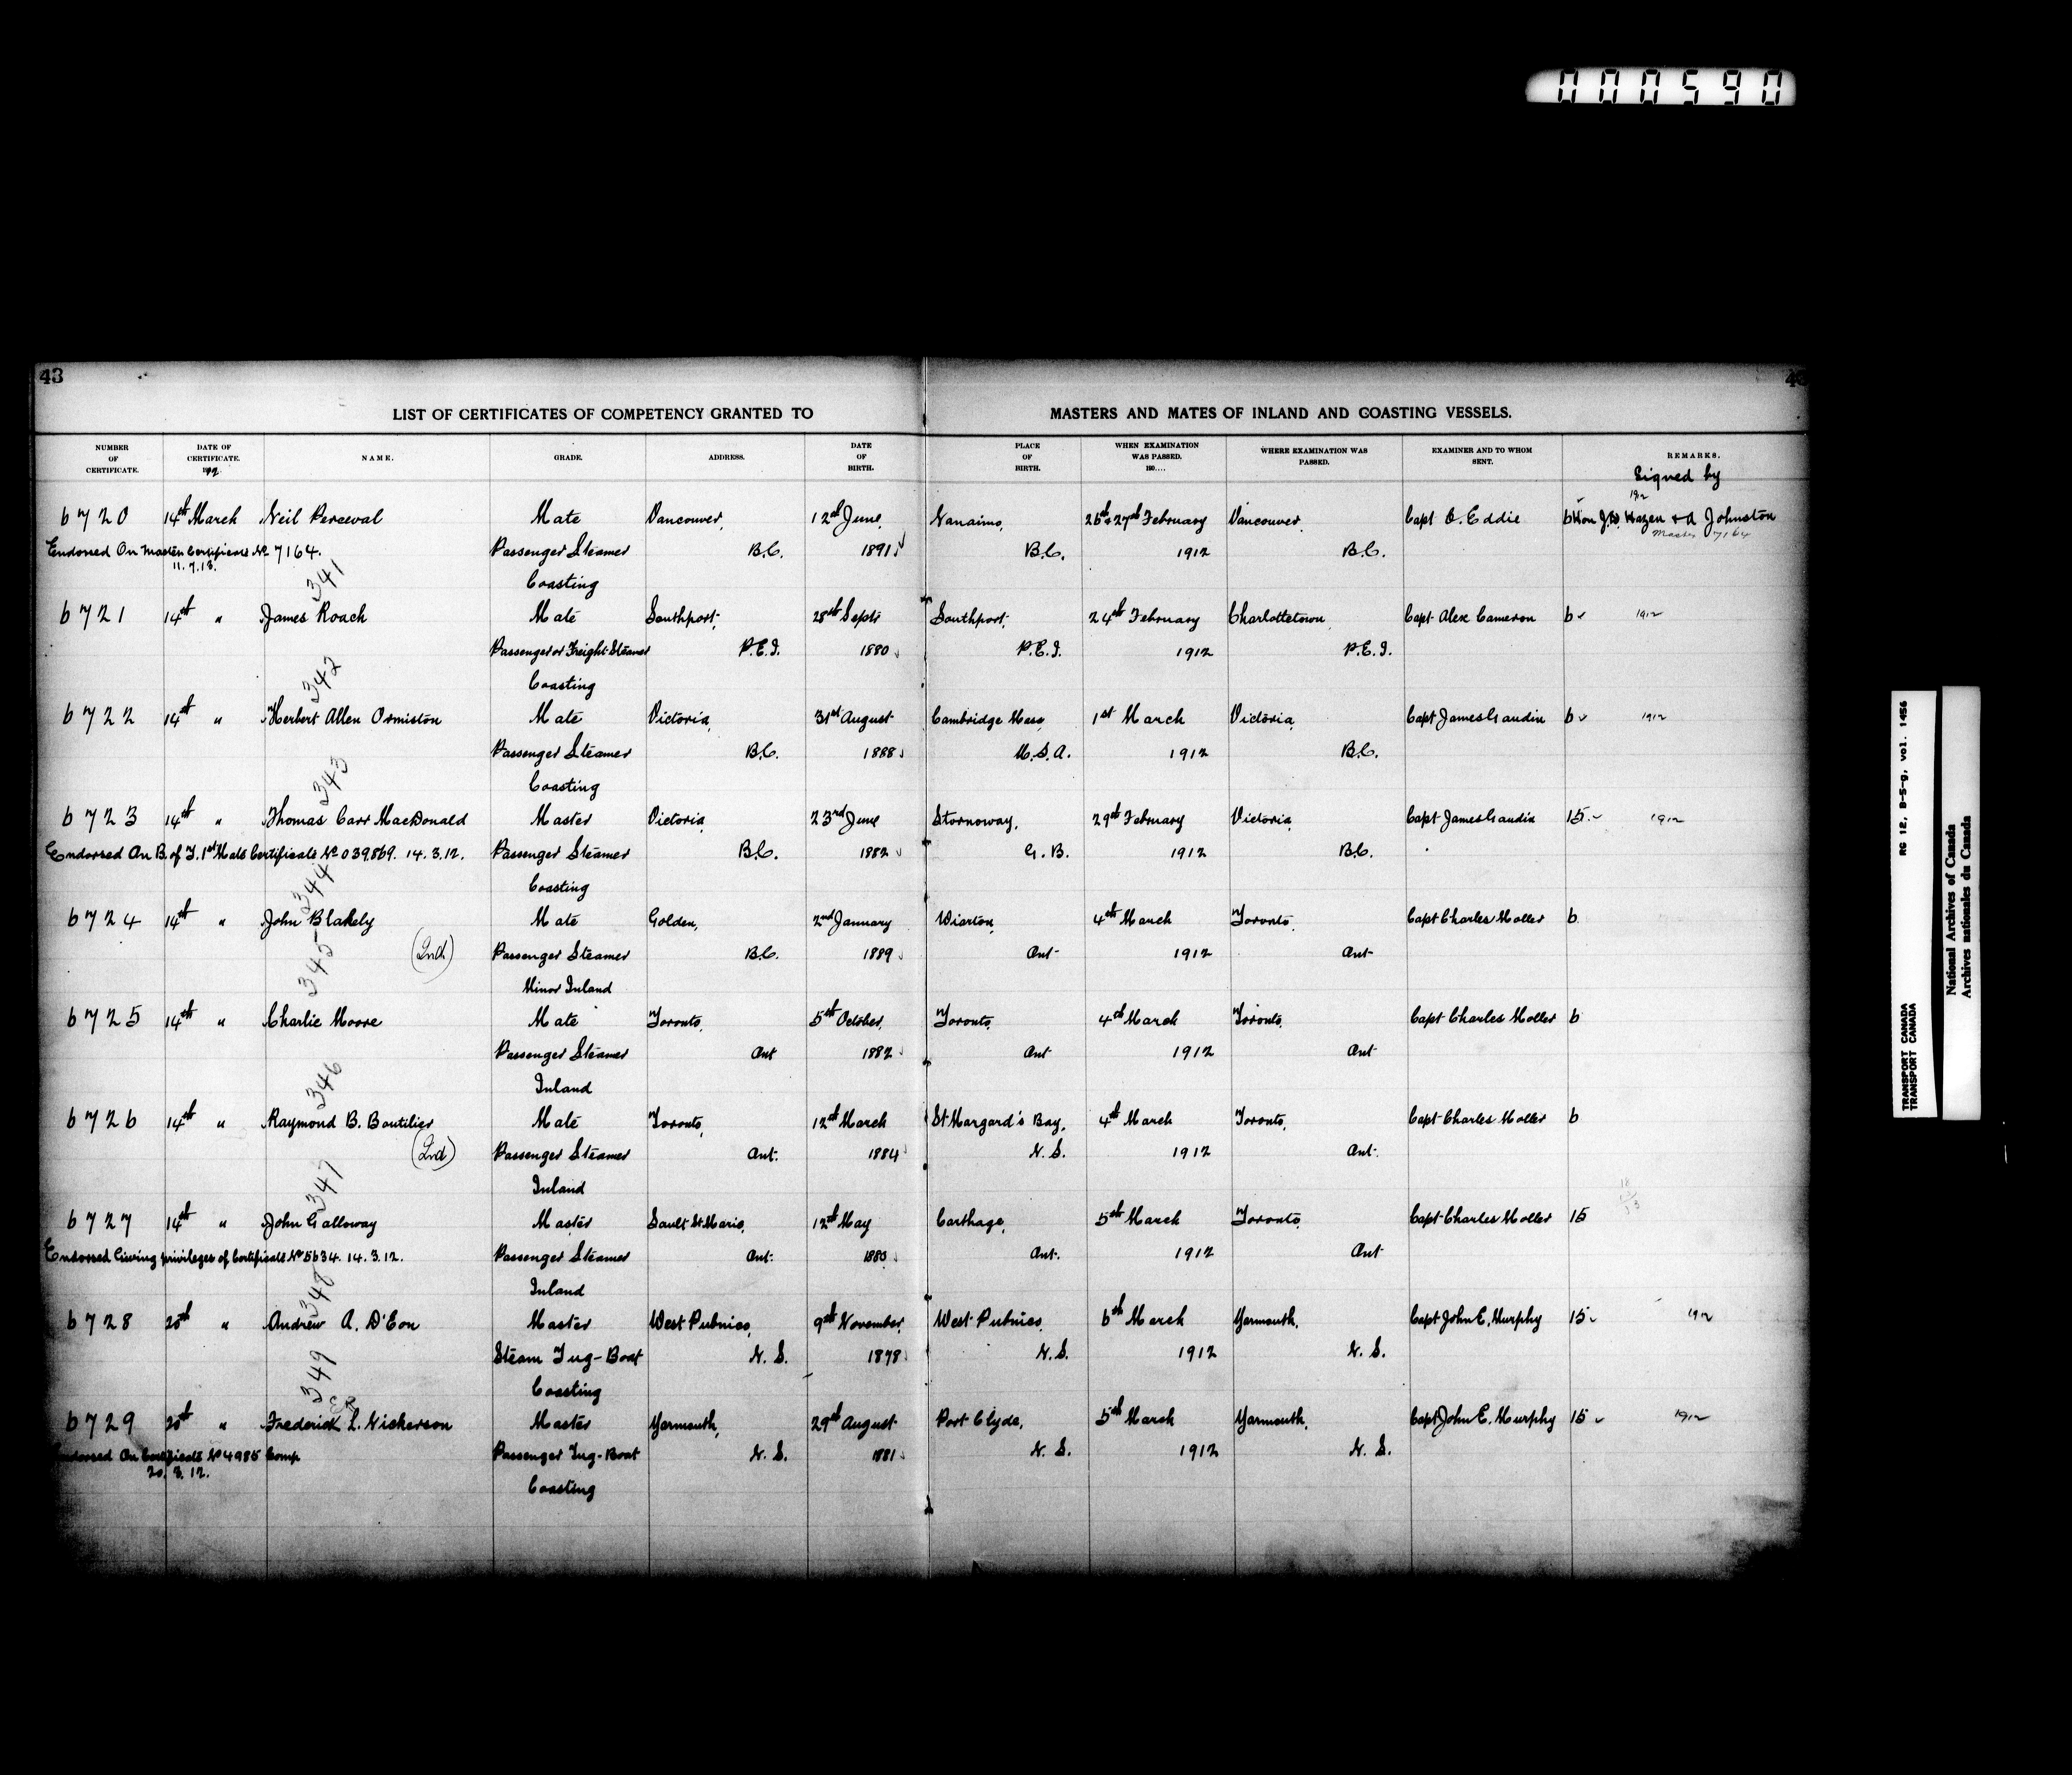 000590
43
43
LIST OF CERTIFICATES OF COMPETENCY GRANTED TO MASTERS AND MATES OF INLAND AND COASTING VESSELS.
NUMBER OF CERTIFICATE. DATE OF CERTIFICATE. 1912 NAME. GRADE. ADDRESS. DATE OF BIRTH. PLACE OF BIRTH. WHEN EXAMINATION WAS PASSED. 18.... WHERE EXAMINATION WAS PASSED. EXAMINER AND TO WHOM SENT. REMARKS.
Signed by
1912
6720 14th March Neil Perceval Mate Vancouver, 12th June, Nanaimo, 26th & 27th February Vancouver, Capt C. Eddie 6 Hon J.D. Hazen & A Johnston
Master 7164
Endorsed On Master Certificate No 7164. Passenger Steamer B.C. 1891 B.C. 1912 B.C.
11.7.13.
341 Coasting
6721 14th " James Roach Mate Southport, 28th Septr Southport, 24th February Charlottetown Capt Alex Cameron 6 1912
Passenger or Freight Steamer P.E.I. 1880 P.E.I. 1912 P.E.I.
342 Coasting
6722 14th " Herbert Allen Ormiston Mate Victoria, 31st August Cambridge Mass, 1st March Victoria, Capt James Gaudin 6 1912
Passenger Steamer B.C. 1888 U.S.A. 1912 B.C.
343 Coasting
6723 14th " Thomas Carr MacDonald Master Victoria, 23rd June Stornoway, 29th February Victoria, Capt James Gaudin 15 1912
Endorsed On B. of T. 1st Mate Certificate No 039869. 14.3.12. Passenger Steamer B.C. 1882 G.B. 1912 B.C.
344 Coasting
6724 14th " John Blakely Mate Golden, 2nd January Wiarton, 4th March Toronto, Capt Charles Moller 6
(2nd) Passenger Steamer B.C. 1889 Ont 1912 Ont
345 Minor Inland
6725 14th " Charlie Moore Mate Toronto, 5th October, Toronto, 4th March Toronto, Capt Charles Moller 6
Passenger Steamer Ont 1882 Ont 1912 Ont
346 Inland
6726 14th " Raymond B. Boutilier Mate Toronto, 12th March St Margard's Bay, 4th March Toronto, Capt Charles Moller 6
(2nd) Passenger Steamer Ont. 1884 N.S. 1912 Ont.
347 Inland
6727 14th " John Galloway Master Sault St. Marie, 12th May Carthage, 5th March Toronto, Capt Charles Moller 15
Endorsed Giving privileges of Certificate No 5634. 14.3.12. Passenger Steamer Ont. Ont. 1912 Ont
348 Inland
6728 20th " Andrew A. D'Eon Master West Pubnico, 9th November, West Pubnico, 6th March Yarmouth, Capt John E. Murphy 15 1912
Steam Tug-Boat N.S. 1878 N.S. 1912 N.S.
349 Coasting
6729 20th " Frederick L. Nickerson Master Yarmouth, 29th August Port Clyde, 5th March Yarmouth, Capt John E. Murphy 15 1912
Endorsed On Certificate No 4985 Comp Passenger Tug-Boat N.S. 1881 N.S. 1912 N.S.
20.3.12.
Coasting
RG 12, B-5-g, vol. 1456
TRANSPORT CANADA
TRANSPORT CANADA
National Archives of Canada
Archives nationales du Canada